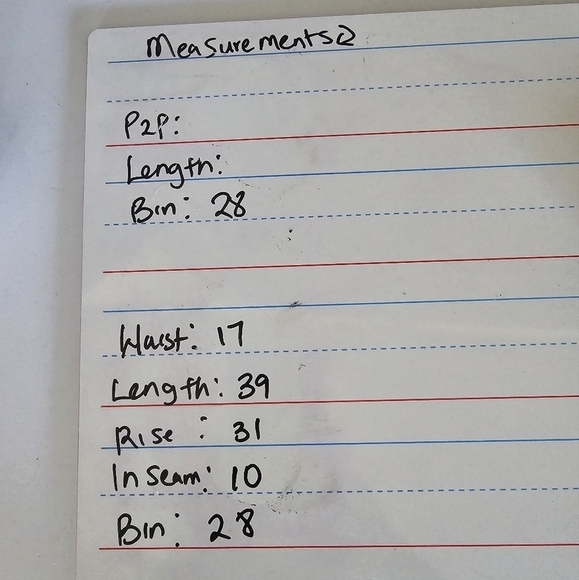 Measurements
P2P:
Length:
Bin: 28
Waist: 17
Length: 39
Rise : 31
Inseam: 10
Bin: 28